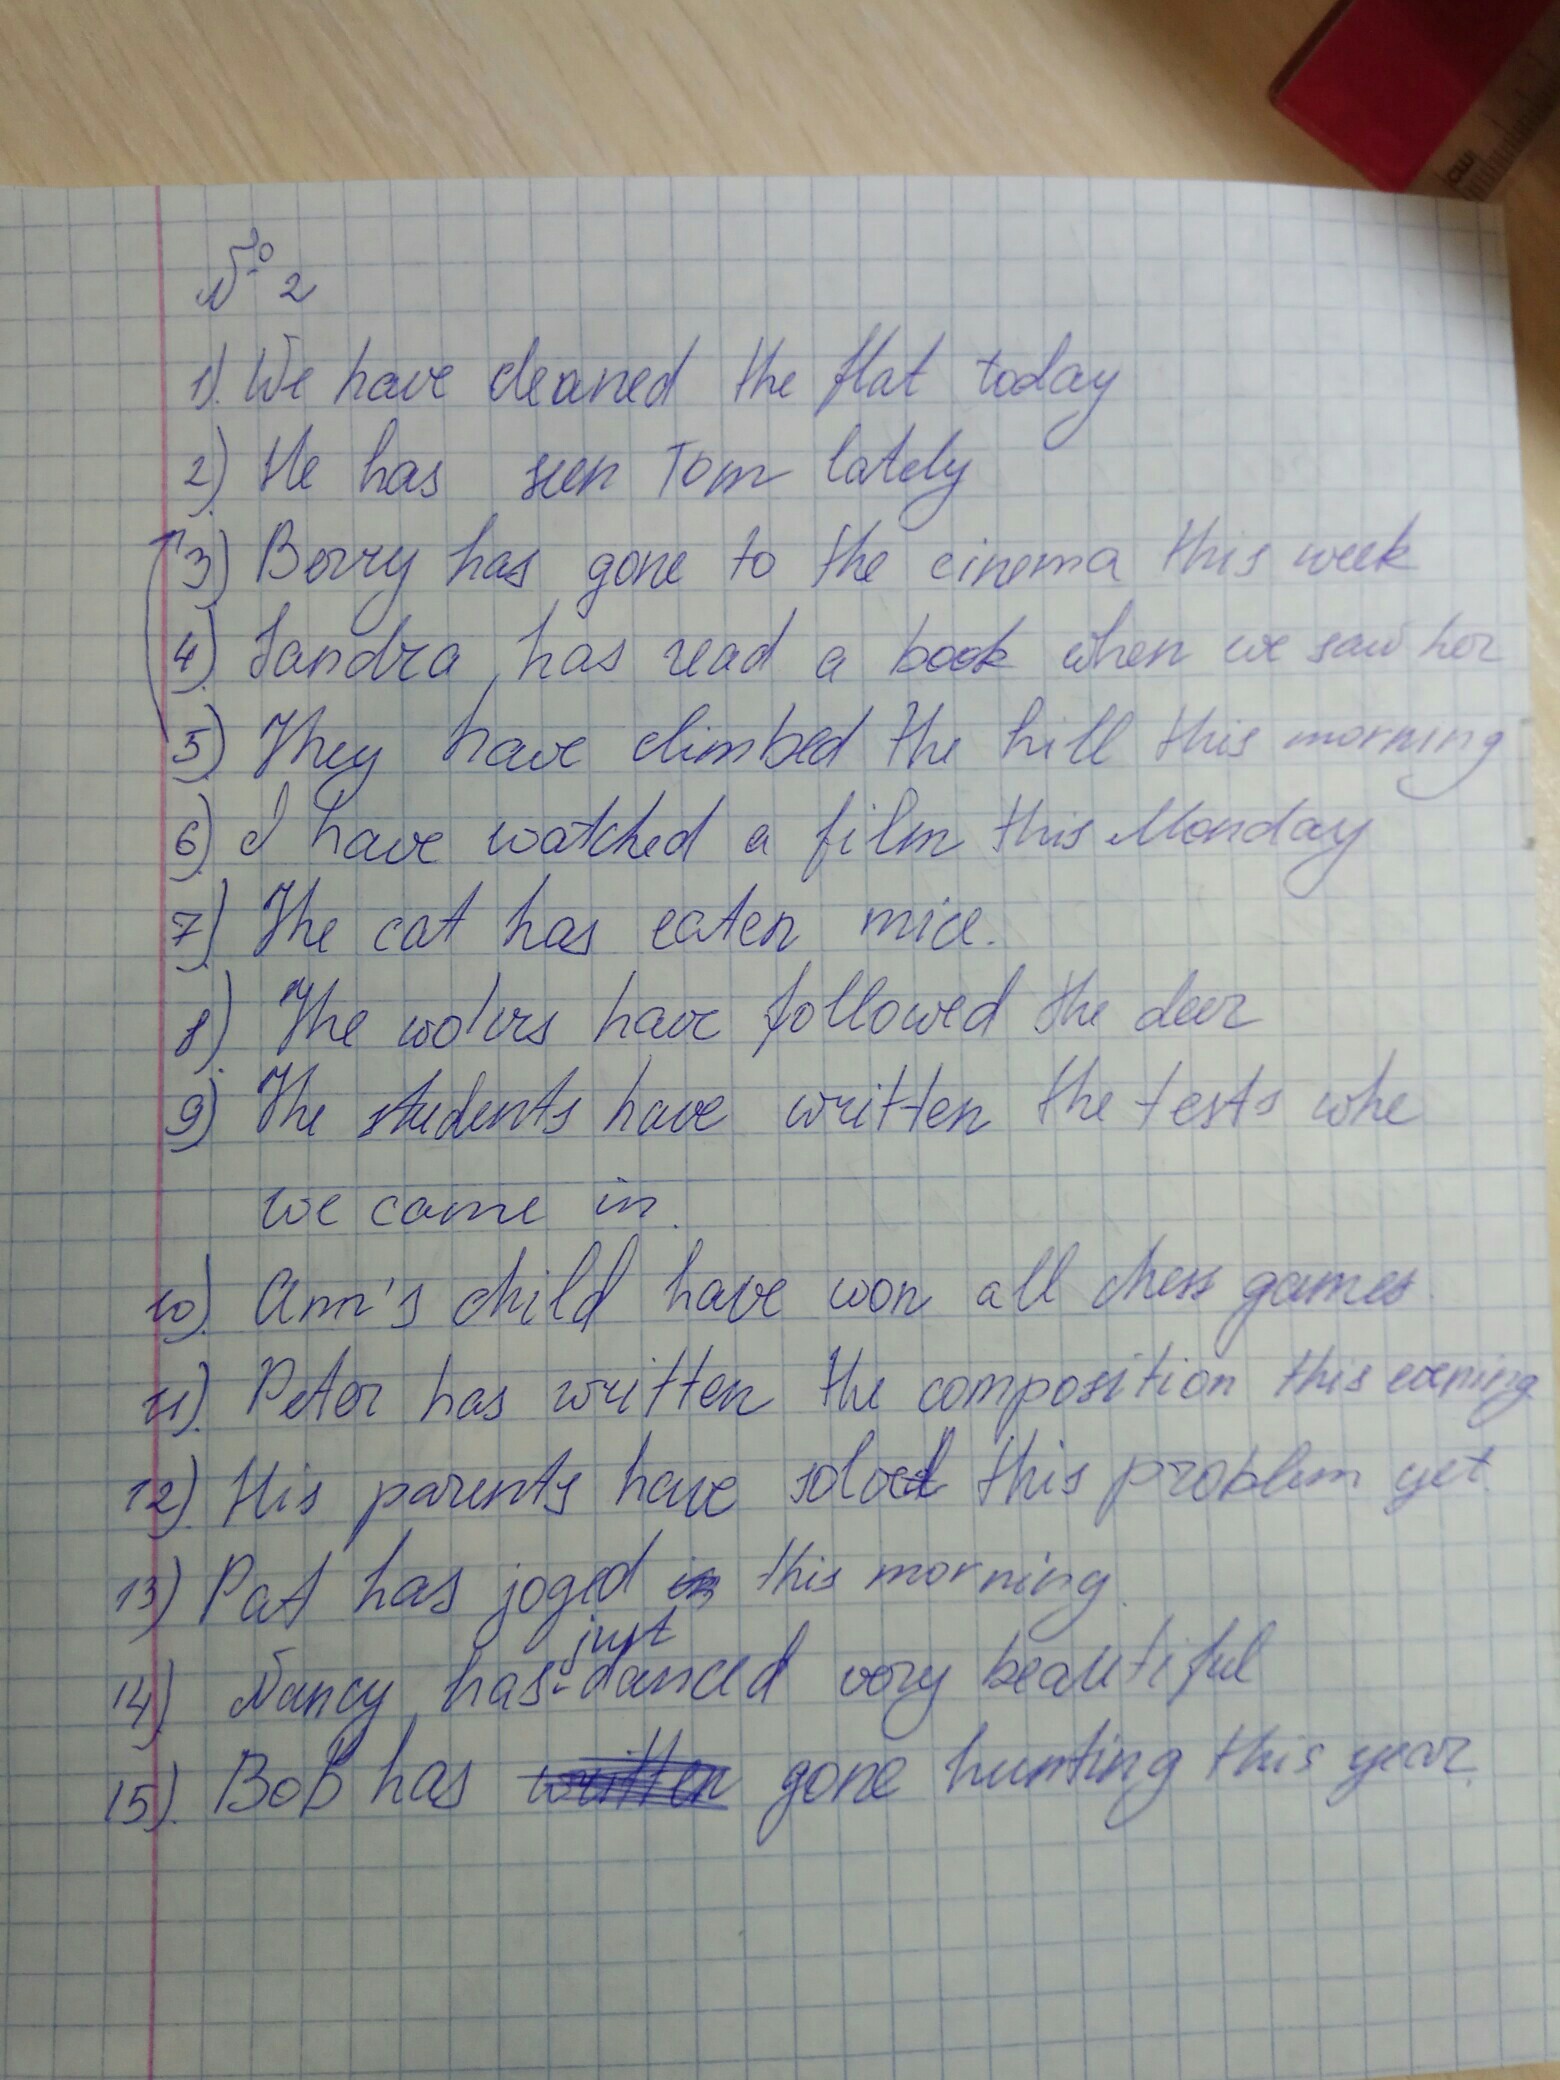 № 2
1). We have cleaned the flat today
2) He has seen Tom lately
3) Berry has gone to the cinema this week
4) Sandra has read a book when we saw her
5) They have climbed the hill this morning
6) I have watched a film this Monday
7) The cat has eaten mice.
8) The wolvs have followed the deer
9) The students have written the tests whe
we came in.
10) Ann's child have won all chess games.
11). Peter has written the composition this evening
12) His parents have solved this problem yet.
13) Pat has joged this morning.
just
14) Nancy has danced very beautiful
15). Bob has written gone hunting this year.